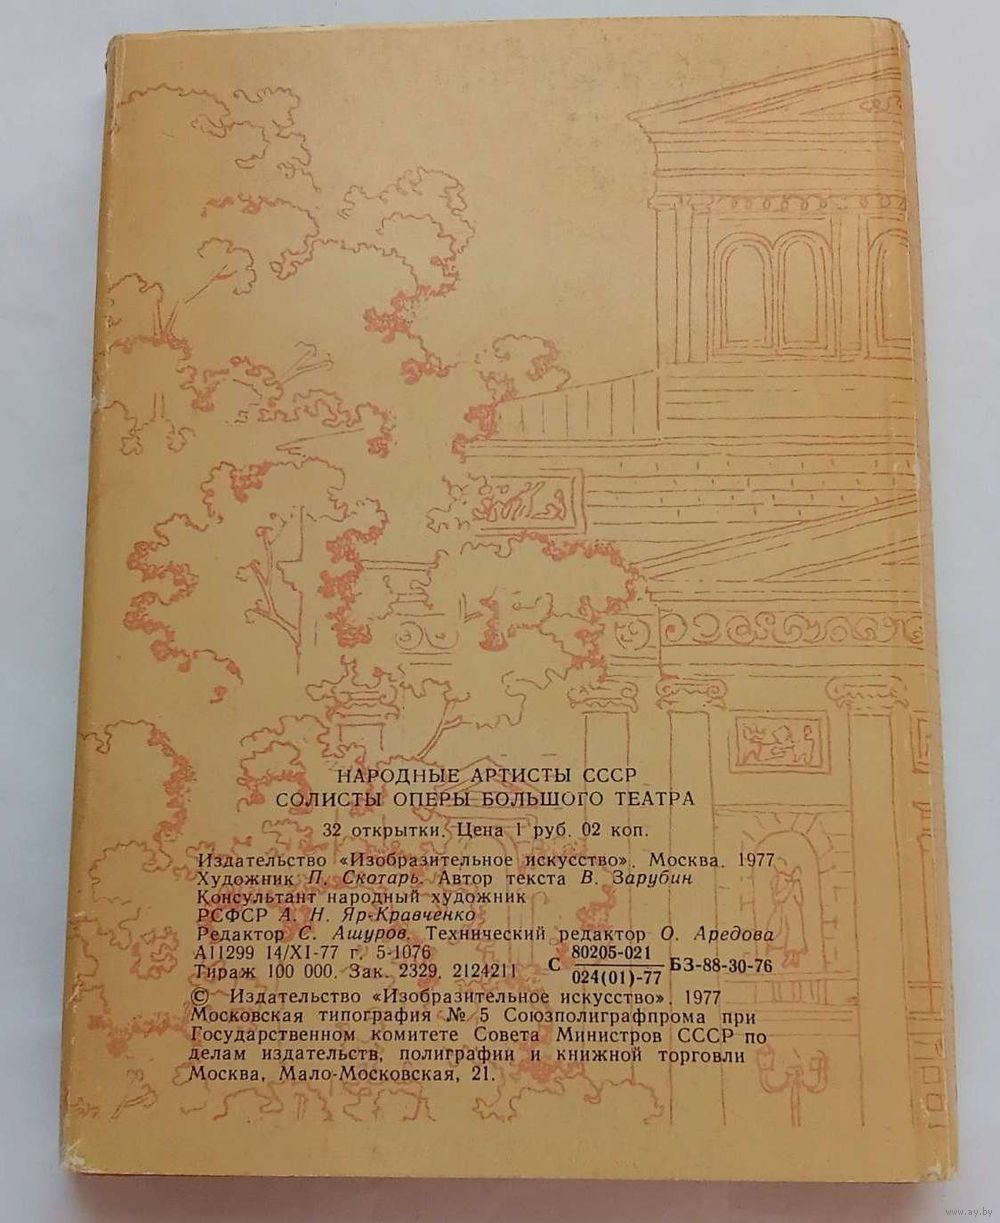 НАРОДНЫЕ АРТИСТЫ СССР
СОЛИСТЫ ОПЕРЫ БОЛЬШОГО ТЕАТРА
32 открытки. Цена 1 руб. 02 коп.
Издательство «Изобразительное искусство». Москва. 1977
Художник П. Скотарь. Автор текста В. Зарубин
Консультант народный художник
РСФСР А. Н. Яр-Кравченко
Редактор С. Ашуров. Технический редактор О. Аредова
А11299 14/XI-77 г. 5-1076
Тираж 100 000. Зак. 2329. 2124211
С 80205-021 БЗ-88-30-76
024(01)-77
© Издательство «Изобразительное искусство». 1977
Московская типография № 5 Союзполиграфпрома при
Государственном комитете Совета Министров СССР по
делам издательств, полиграфии и книжной торговли
Москва, Мало-Московская, 21.
www.ay.by